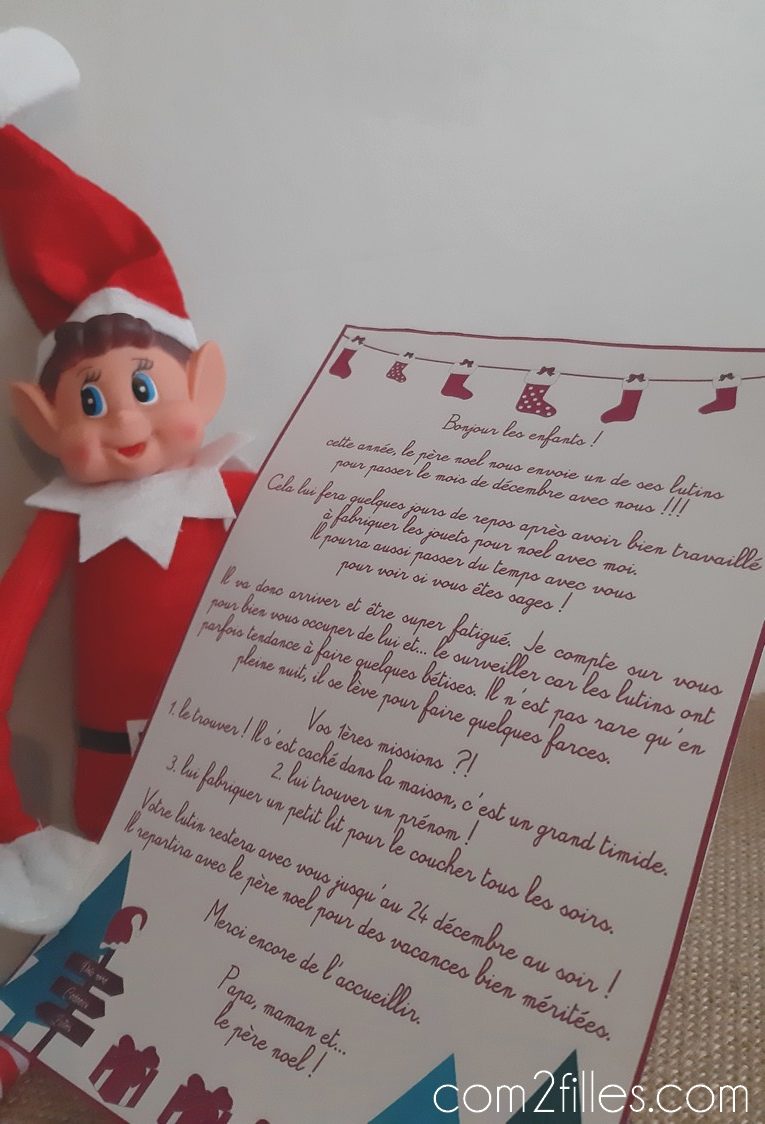 Bonjour les enfants !
cette année, le père noel nous envoie un de ses lutins
pour passer le mois de décembre avec nous !!!
Cela lui fera quelques jours de repos après avoir bien travaillé
à fabriquer les jouets pour noel avec moi.
Il pourra aussi passer du temps avec vous
pour voir si vous êtes sages !
Il va donc arriver et être super fatigué. Je compte sur vous
pour bien vous occuper de lui et... le surveiller car les lutins ont
parfois tendance à faire quelques bêtises. Il n'est pas rare qu'en
pleine nuit, il se lève pour faire quelques farces.
Vos 1ères missions ?!
1. le trouver ! Il s'est caché dans la maison, c'est un grand timide.
2. lui trouver un prénom !
3. lui fabriquer un petit lit pour le coucher tous les soirs.
Votre lutin restera avec vous jusqu'au 24 décembre au soir !
Il repartira avec le père noel pour des vacances bien méritées.
Merci encore de l'accueillir.
Papa, maman et...
le père noel !
com2filles.com